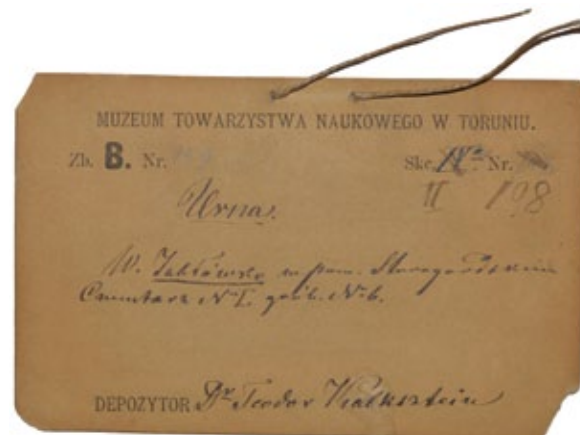 MUZEUM TOWARZYSTWA NAUKOWEGO W TORUNIU.
Zb. B. Nr. Skc. Nr.
II 198
Urna.
W. Jabłówko w pow. Starogardzkim
Cmentarz N I. grób. N 6.
DEPOZYTOR Dr. Teodor